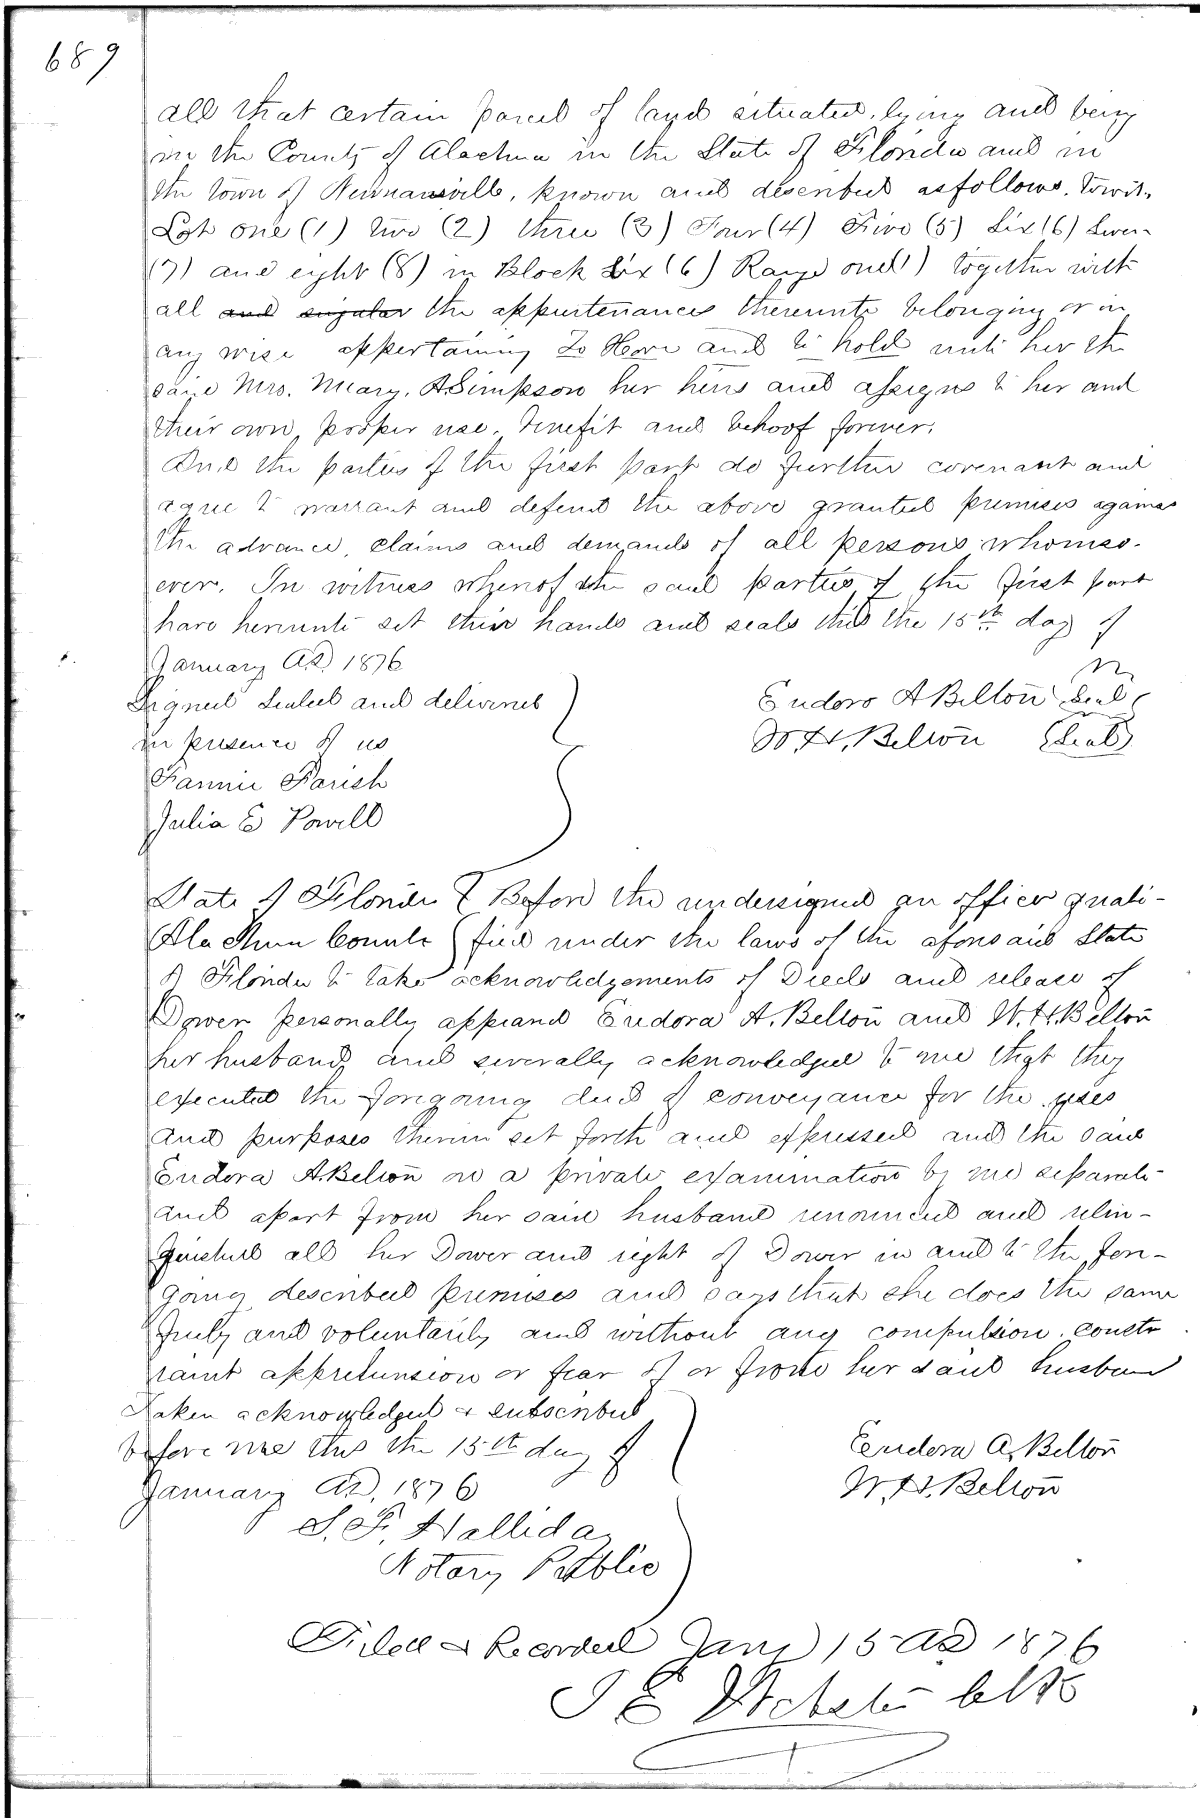 689
all that certain parcel of land situated, lying and being
in the County of Alachua in the State of Florida and in
the town of Newnansville, known and described as follows. Towit,
Lot one (1) two (2) three (3) Four (4) Five (5) Six (6) Seven
(7) and eight (8) in Block Six (6) Range one (1) together with
all and singular the appurtenances thereunto belonging or in
any wise appertaining To Have and to hold unto her the
said Mrs. Meary. A Simpson her heirs and assigns to her and
their own, proper use, benefit and behoof forever.
And the parties of the first part do further covenant and
agree to warrant and defend the above granted premises against
the advance, claims and demands of all persons whomso-
ever. In witness whereof the said parties of the first part
have hereunto set their hands and seals this the 15th day of
January AD 1876
Signed Sealed and delivered
in presence of us
Fannie Parish
Julia E Powell
Eudoro A Belton Seal
W. H. Belton (Seal)
State of Florida } Before the undersigned an officer quali-
Alachua County } fied under the laws of the aforesaid State
of Florida to take acknowledgements of Deeds and release of
Dower personally appeared Eudora A. Belton and W. H. Belton
her husband and severally acknowledged to me that they
executed the foregoing deed of conveyance for the uses
and purposes therein set forth and expressed and the said
Eudora A. Belton on a private examination by me separate
and apart from her said husband renounced and relin-
quished all her Dower and right of Dower in and to the fore-
going described premises and says that she does the same
freely and voluntarily and without any compulsion. constr
raint apprehension or fear of or from her said husband
Taken acknowledged & subscribed
before me this the 15th day of
January AD, 1876
S. F. Halliday
Notary Public
Eudora A. Belton
W. H. Belton
Filed & Recorded Jany 15 AD 1876
J E Webster Clk